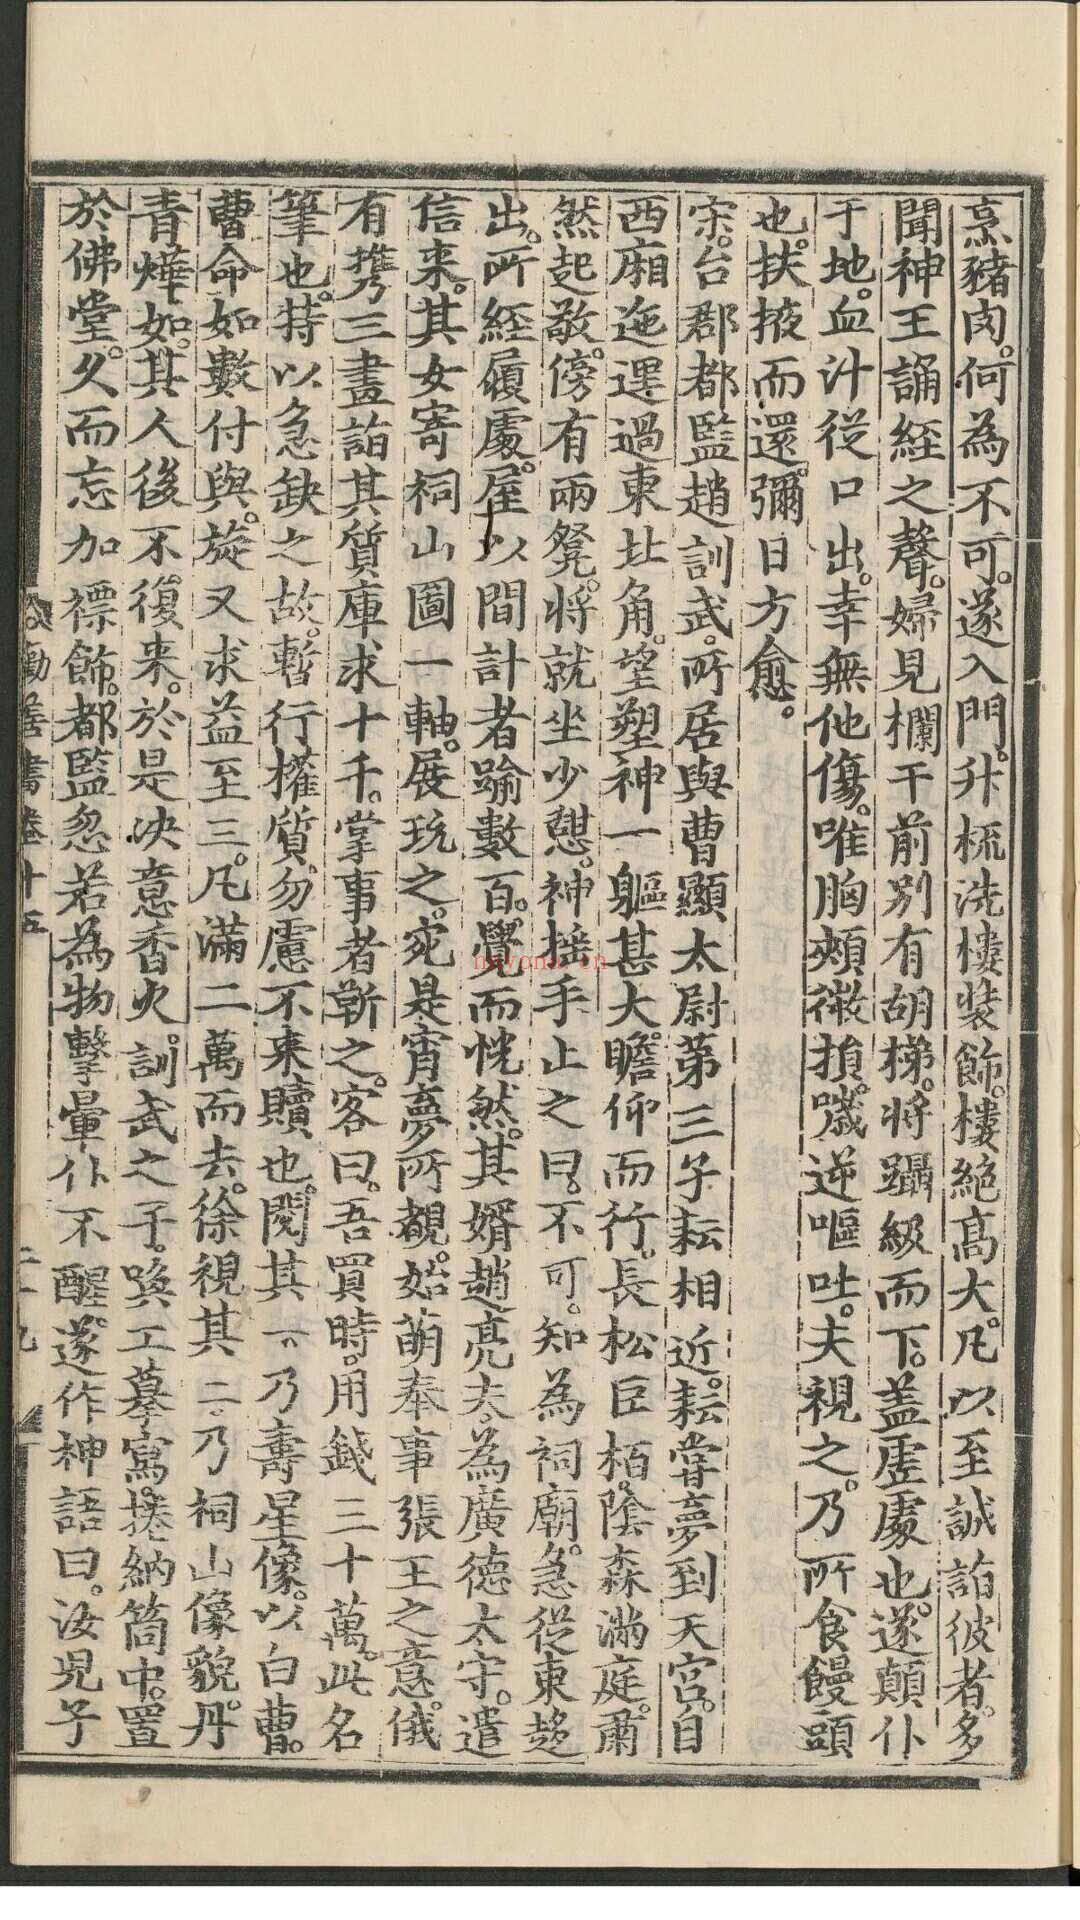 烹豬肉。何為不可。遂入門。升梳洗樓裝飾。樓絕高大。凡以至誠詣彼者。多
聞神王誦經之聲。婦見欄干前別有胡梯。將躡級而下。蓋虛處也。遂顛仆
于地。血汁從口出。幸無他傷。唯胸頰微損。嘰逆嘔吐。夫視之。乃所食饅頭
也。扶掖而還。彌日方愈。
宋。台郡都監趙訓武。所居與曹顯太尉第三子耘相近。耘嘗夢到天宮。自
西廂迤邐過東北角。望塑神一軀甚大。瞻仰而行。長松巨栢。陰森滿庭。肅
然起敬。傍有兩凳。將就坐少憇。神搖手止之曰。不可。知為祠廟。急從東趍
出。所經履處。屋以間計者踰數百。覺而恍然。其婿趙亮夫。為廣德太守。遣
信來。其女寄祠山圖一軸。展玩之。宛是宵夢所覩。始萌奉事張王之意。俄
有攜三畫詣其質庫求十千。掌事者靳之。客曰。吾買時。用錢三十萬。此名
筆也。特以急缺之故。暫行權質。勿慮不來贖也。閱其一。乃壽星像。以白曹。
曹命如數付與。旋又求益至三。凡滿二萬而去。徐視其二。乃祠山像貌。丹
青燁如。其人後不復來。於是決意香火。訓武之子。喚工摹寫。捲納筒中。置
於佛堂。久而忘加褾飾。都監忽若為物擊暈仆不醒。遂作神語曰。汝兒子
勸善書卷十五
二十九
nxyona.cn